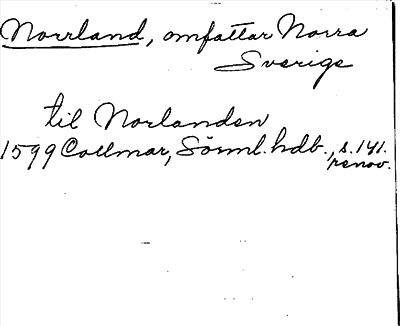 Norrland, omfattar Norra
Sverige
til Norlanden
1599 Collmar, Sörml. hdb., s. 141.
renov.